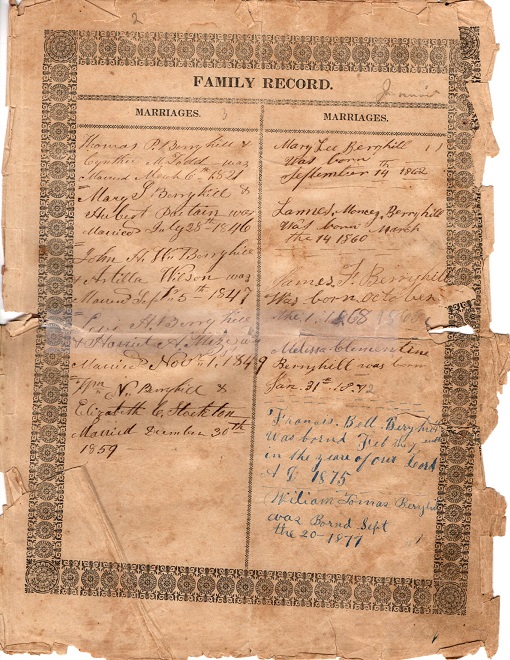 2
FAMILY RECORD.
MARRIAGES.
Thomas P. Berryhill &
Cynthia M. Todd was
Married March 6th 1821
Mary J. Berryhill &
Britain was
Married July 28th 1846
John H. W. Berryhill
& Wilson was
Married Sept. 5th 1847
Levi H. Berryhill
& Harriet A.
Married Nov. 1, 1849
Wm N. Berryhill &
Elizabeth C. Stockton
Married December 30th
1859
MARRIAGES.
Mary Lee Berryhill
Was born
September 14th 1862
James, Monroe, Berryhill
Was born March
the 14 1860
James F. Berryhill
Was born October
the 1. 1868 1866
Melissa Clementine
Berryhill was born
Jan. 31st 1872
Francis. Bell Beryhill
was bornd Feb
in the yeare of our Lord
A D 1875
William Tomas Beryhill
was Bornd Sept
the 20-1877